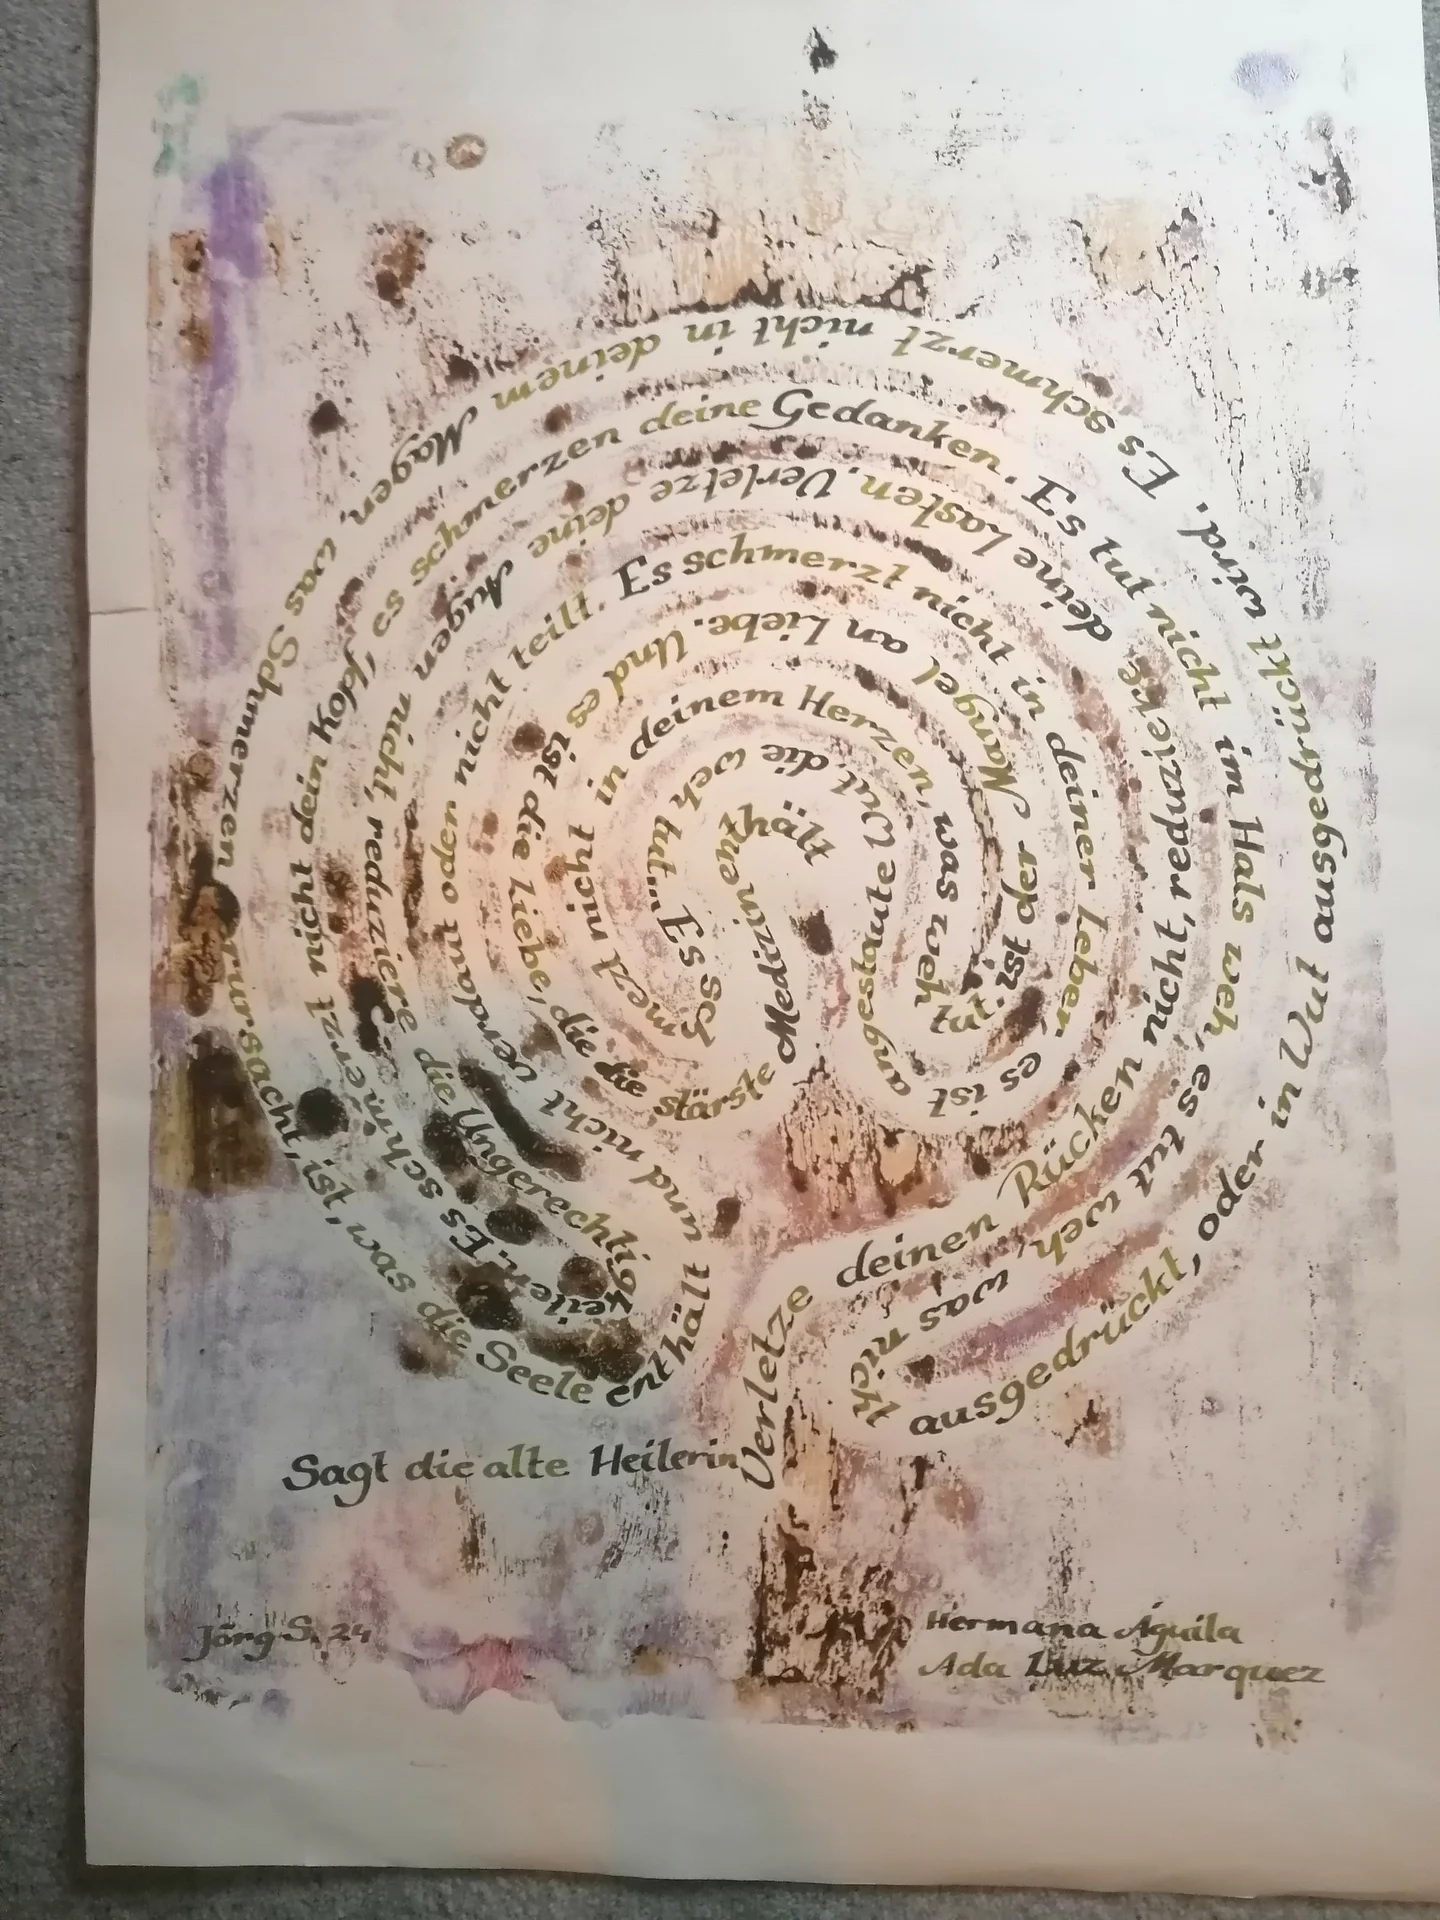 Sagt die alte Heilerin
Verletze deinen Rücken nicht, reduziere
deine Lasten. Verletze deine Augen nicht, reduziere die Ungerechtig
keiten. Es schmerzt nicht dein Kopf, es schmerzen deine Gedanken. Es tut nicht im Hals weh, es tut weh, was nicht
ausgedrückt, oder in Wut ausgedrückt wird. Es schmerzt nicht in deinem Magen, was Schmerzen verursacht, ist, was die Seele enthält
und nicht verdaut oder nicht teilt. Es schmerzt nicht in deiner Leber,
es ist angestaute Wut, die weh tut. Es sch
merzt nicht in deinem Herzen, was weh
tut, ist der Mangel an Liebe. Und es ist die Liebe, die die stärste Medizin enthält
Jörg S. 24
Hermana Águila
Ada Luz Marquez